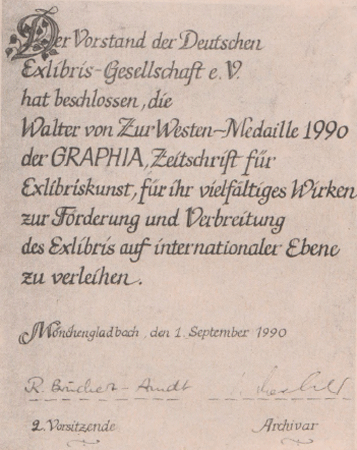 Der Vorstand der Deutschen
Exlibris-Gesellschaft e.V.
hat beschlossen, die
Walter von Zur Westen-Medaille 1990
der GRAPHIA, Zeitschrift für
Exlibriskunst, für ihr vielfältiges Wirken
zur Förderung und Verbreitung
des Exlibris auf internationaler Ebene
zu verleihen.
Mönchengladbach, den 1. September 1990
R. Brüchet-Arndt
2. Vorsitzende Archivar